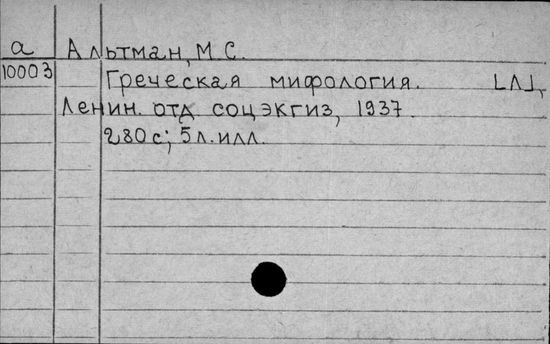 а Альтман, М. С.
10003 Греческая мифология. [Л],
Ленин. отд. соцэкгиз, 1937.
280 с; 5 л. илл.